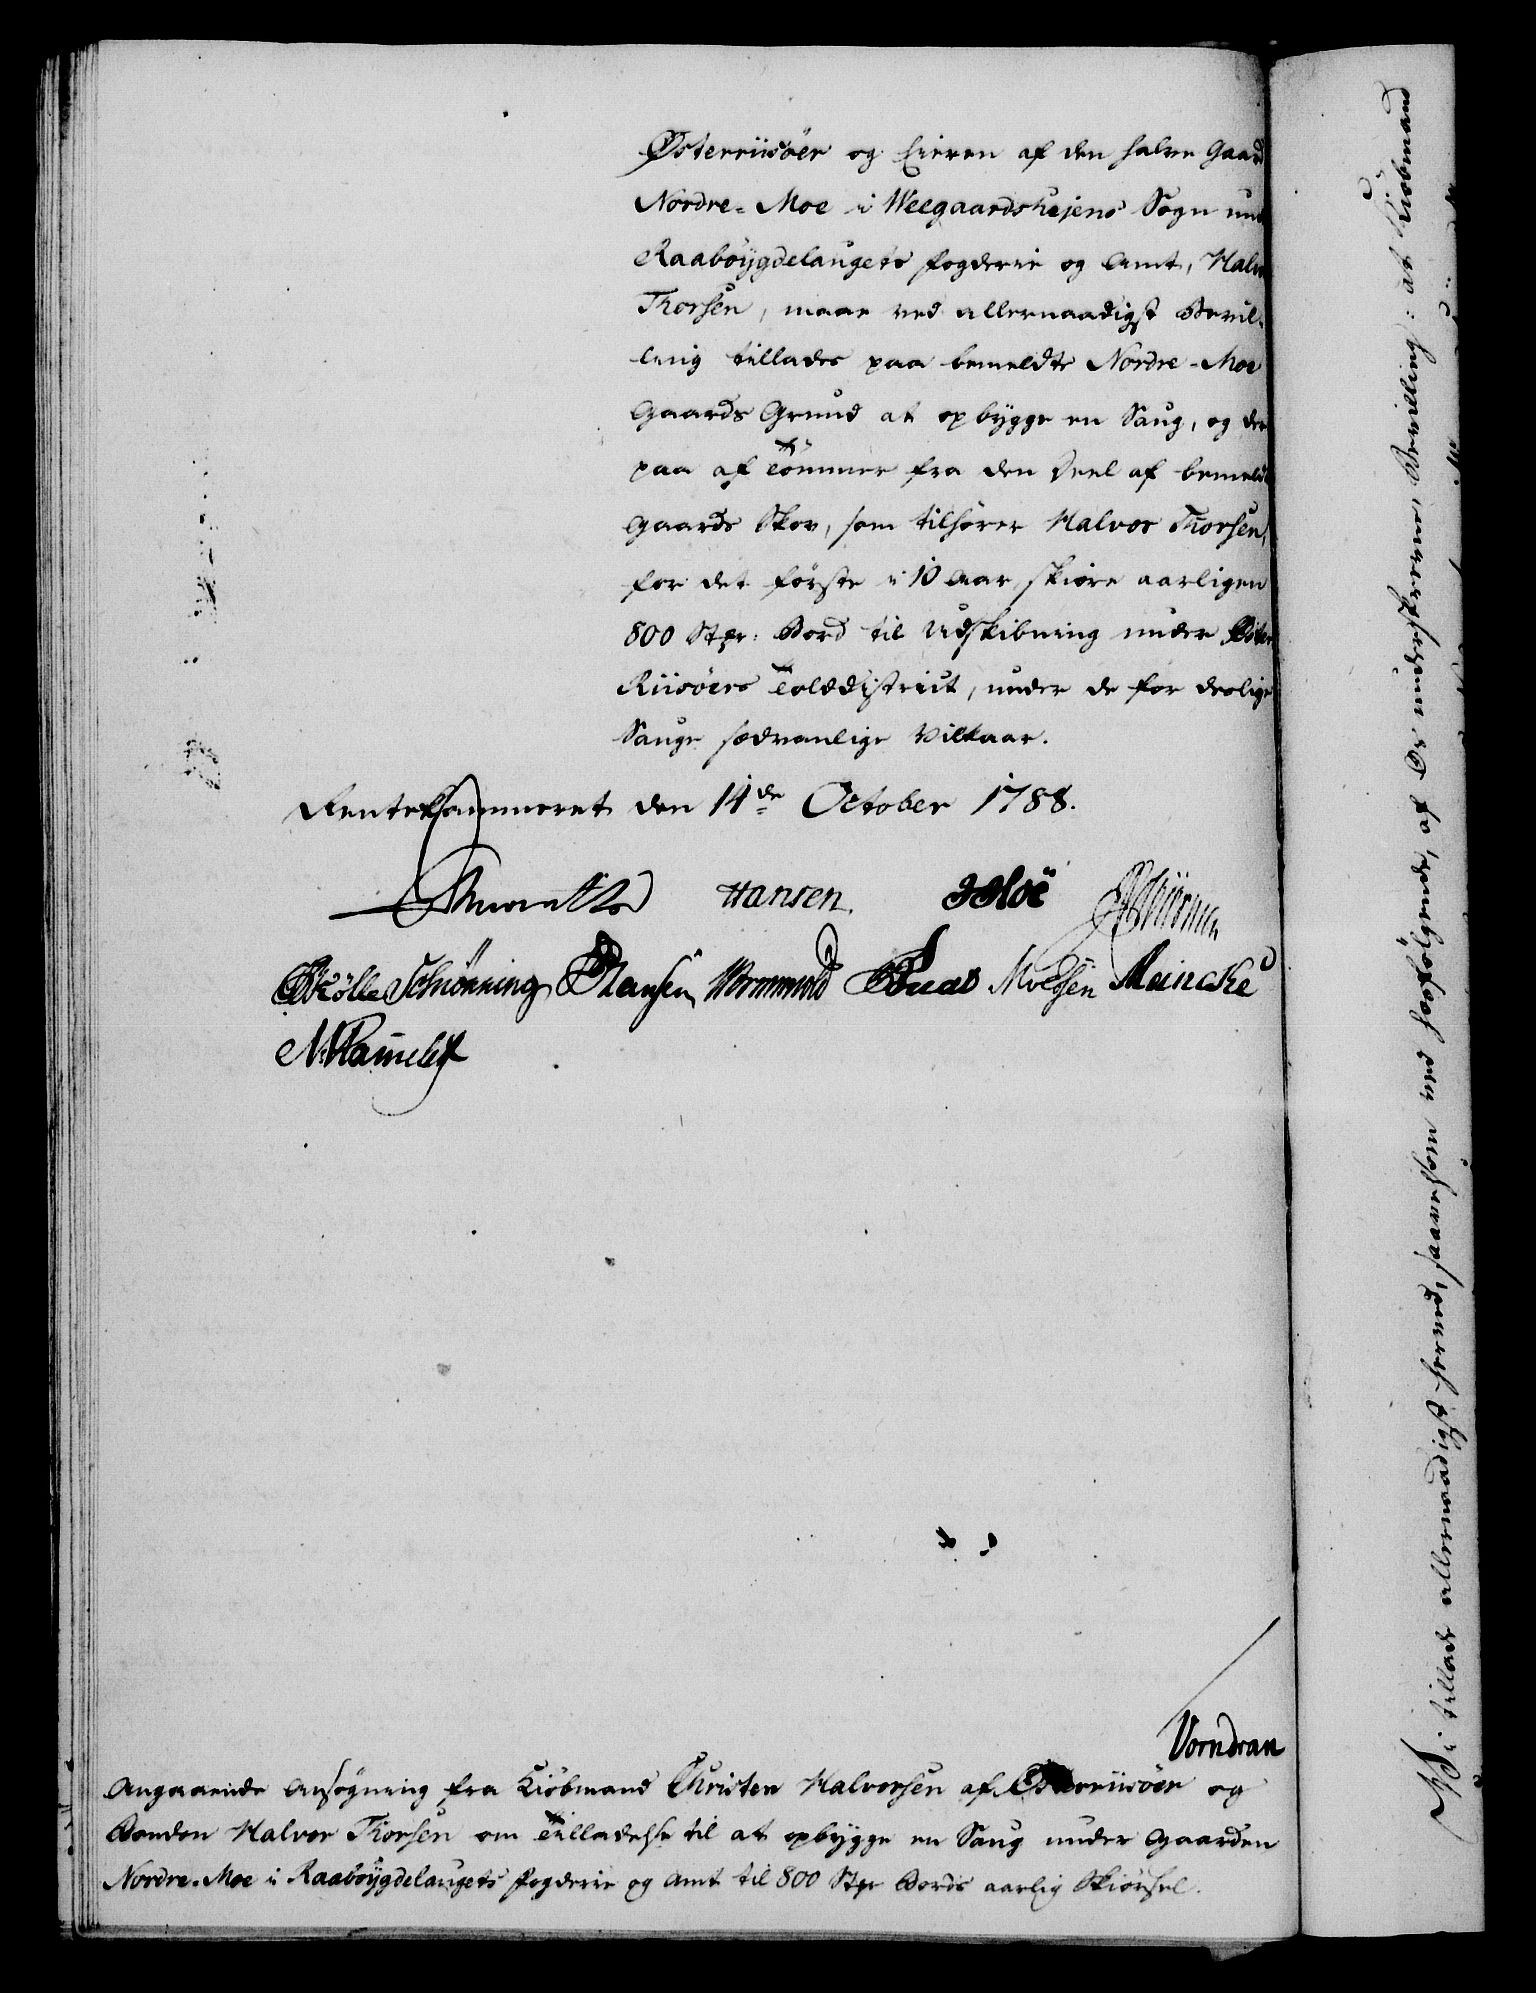 Østerriisöer og Eieren af den halve Gaard
Nordre-Moe i Weegaardshejens Sogn und
Raabøygdelaugets Fogderie og Amt, Halv
Thorsen, maae ved allernaadigst Bevil-
ling tillades paa bemeldte Nordre-Moe
Gaards Grund at opbygge en Saug, og der
paa af Tömmer fra den Deel af bemeldte
Gaards Skov, som tilhører Halvor Thorsen,
for det første i 10 Aar, skiøre aarligen
800 Stpr: Bord til Udskibning under Øster
Riisöers Tolddistrict, under de for deslige
Sauge sædvanlige Vilkaar.
Rentekammeret den 14de October 1788.
Hansen. Hoë
Schiønning Hansen Wormwold Meincke
Vorndran
Angaaende Ansøgning fra Kiöbmand Christen Halvorsen af Østerriisöer og
Bonden Halvor Thorsen om Tilladelse til at opbygge en Saug under Gaarden
Nordre-Moe i Raabøygdelaugets Fogderie og Amt til 800 Stpr Bords aarlig Skiørsel.
Vi tillade allernaadigst herved, saavelsom ved hosfølgende, af Os underskrevne, Bevilling: at Kiöbmand